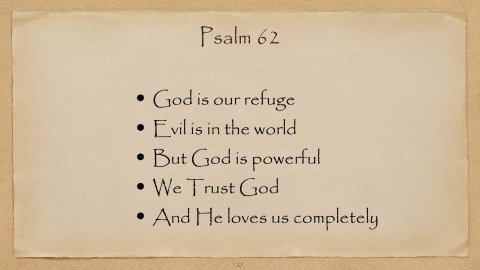 Psalm 62
• God is our refuge
• Evil is in the world
• But God is powerful
• We Trust God
• And He loves us completely